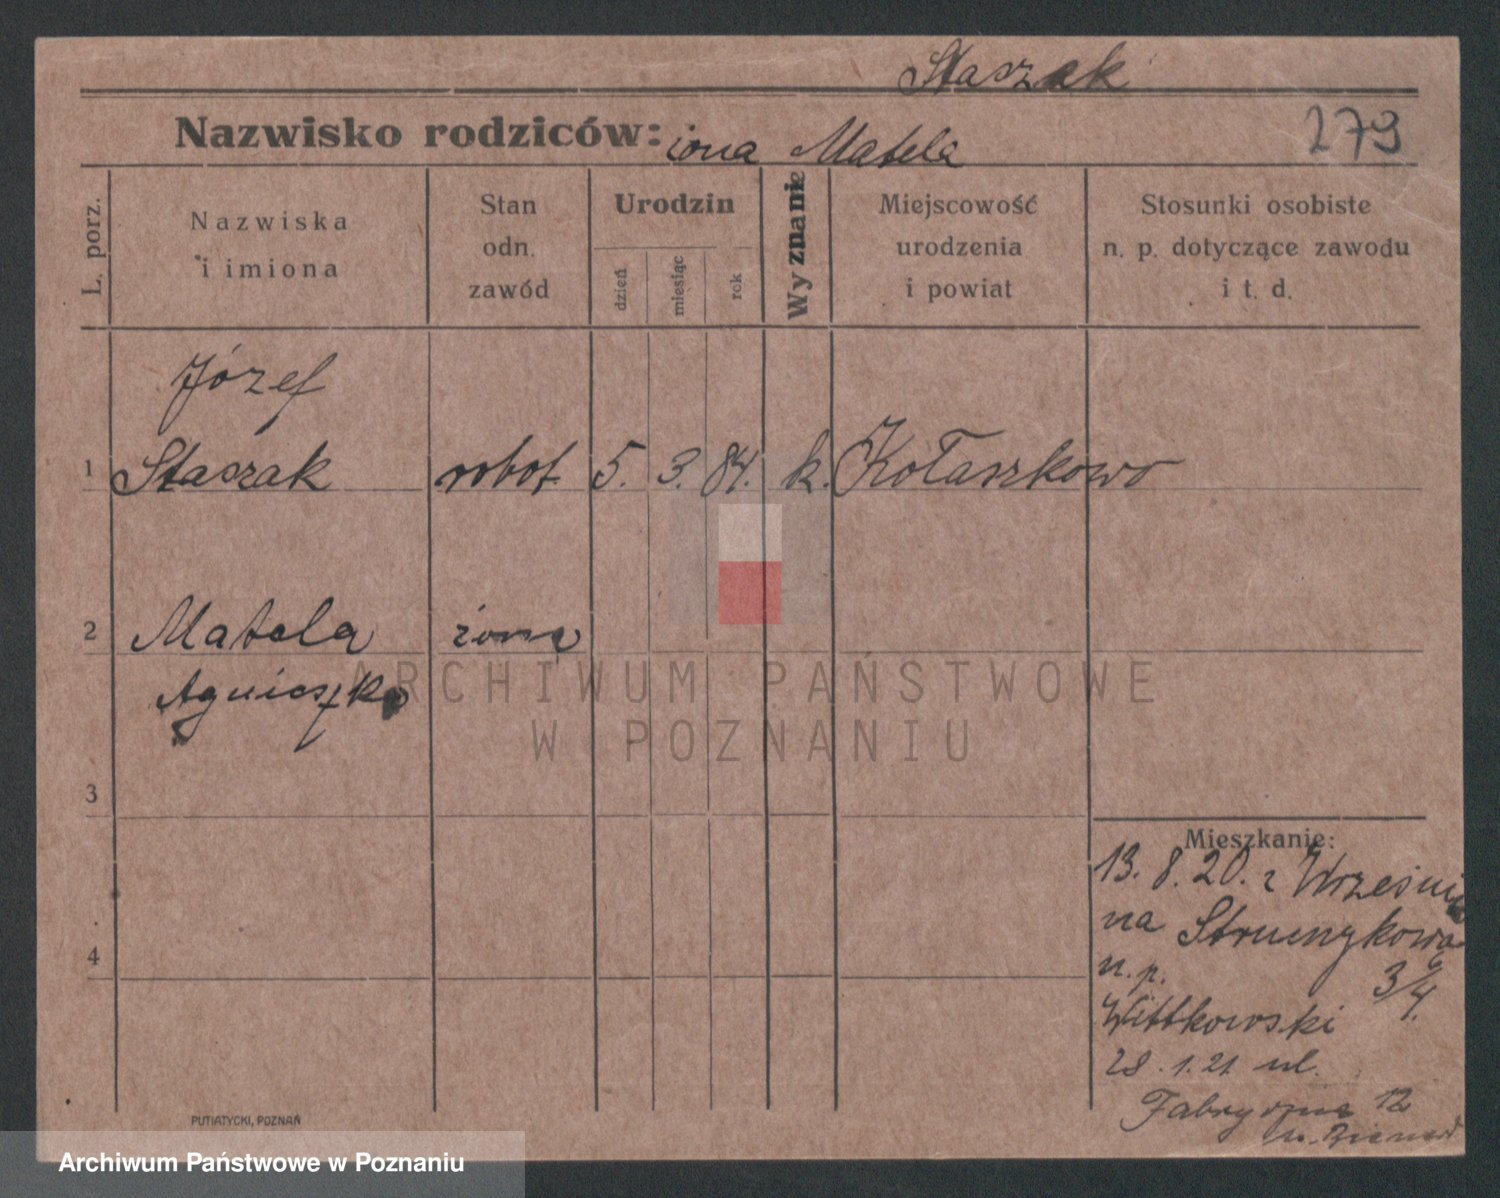 Staszak
Nazwisko rodziców: żona Matela
279
L. porz.
Nazwiska
i imiona
Stan
odn.
zawód
Urodzin
dzień
miesiąc
rok
Wyznanie
Miejscowość
urodzenia
i powiat
Stosunki osobiste
n. p. dotyczące zawodu
i t. d.
Józef
1 Staszak robot. 5. 3. 84. k. Kołaszkowo
2 Matela żona
Agnieszka
3
4
Mieszkanie:
13. 8. 20. z Wrześni
na Strumykową
n. p. 3/4.
Wittkowski
28. 1. 21 ul.
Fabryczna 12
PUTIATYCKI, POZNAŃ
ARCHIWUM PAŃSTWOWE
W POZNANIU
Archiwum Państwowe w Poznaniu